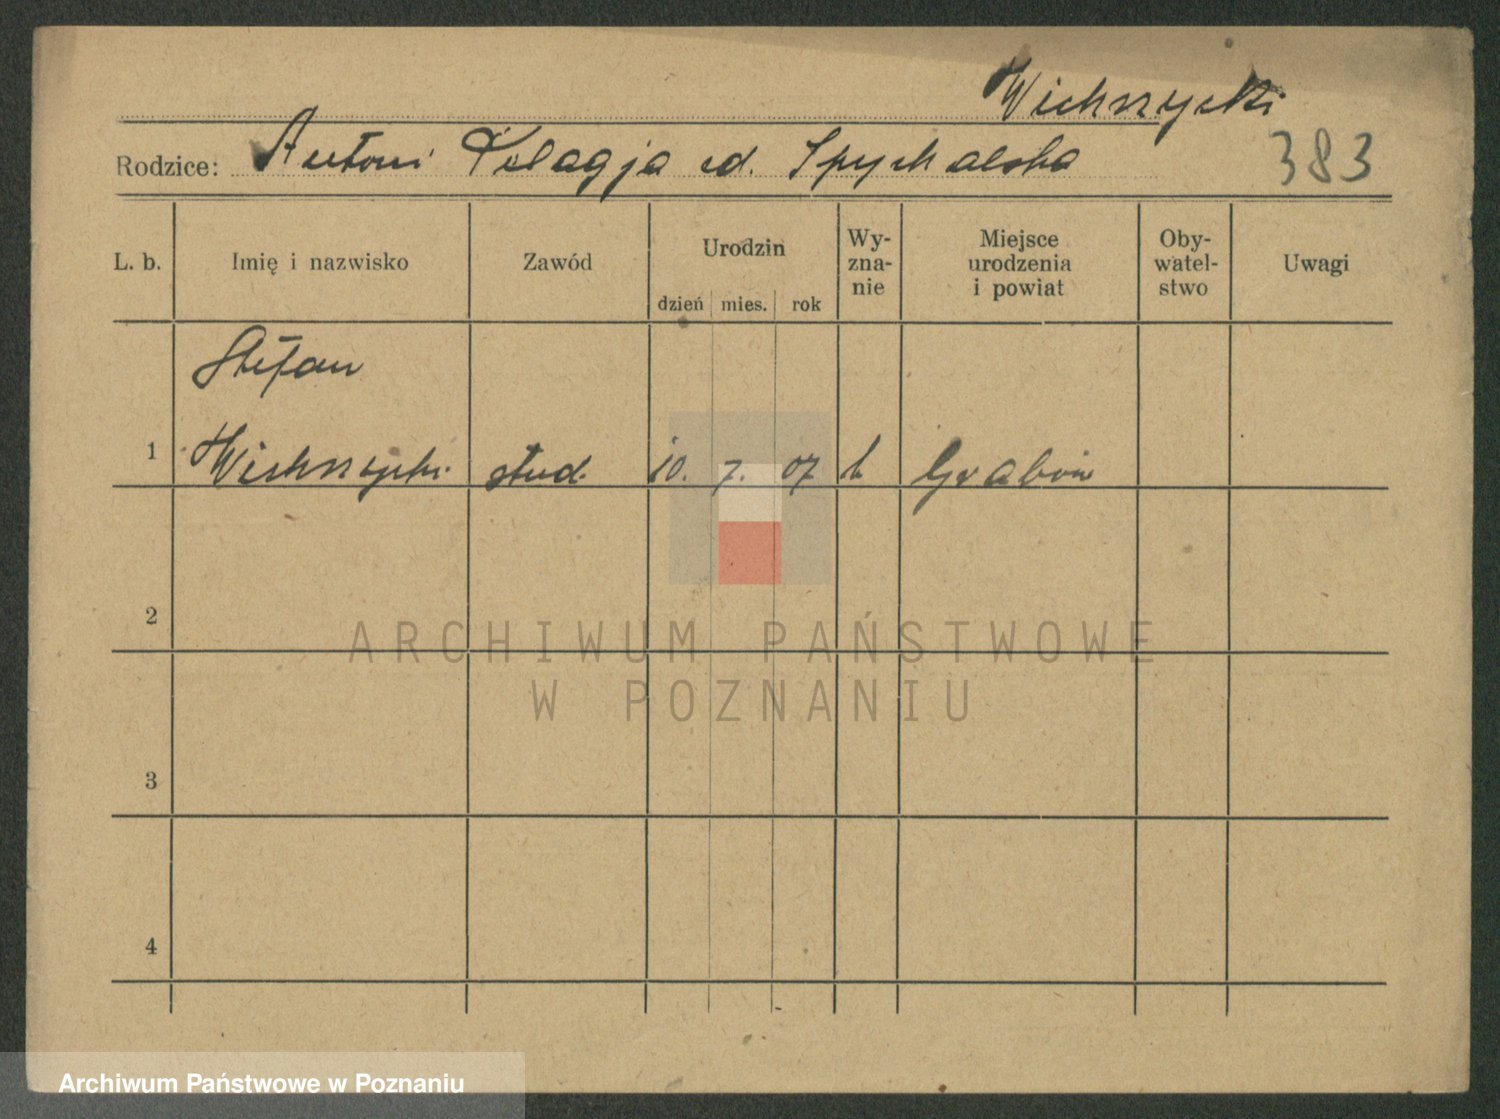 Wichnycki
Rodzice: Antoni Pelagja zd. Spychalska
383
L. b. Imię i nazwisko Zawód Urodzin dzień mies. rok Wy-zna-nie Miejsce urodzenia i powiat Oby-watel-stwo Uwagi
Stefan
1 stud. 10. 7. 07 k Grabów
2
ARCHIWUM PAŃSTWOWE
W POZNANIU
3
4
Archiwum Państwowe w Poznaniu